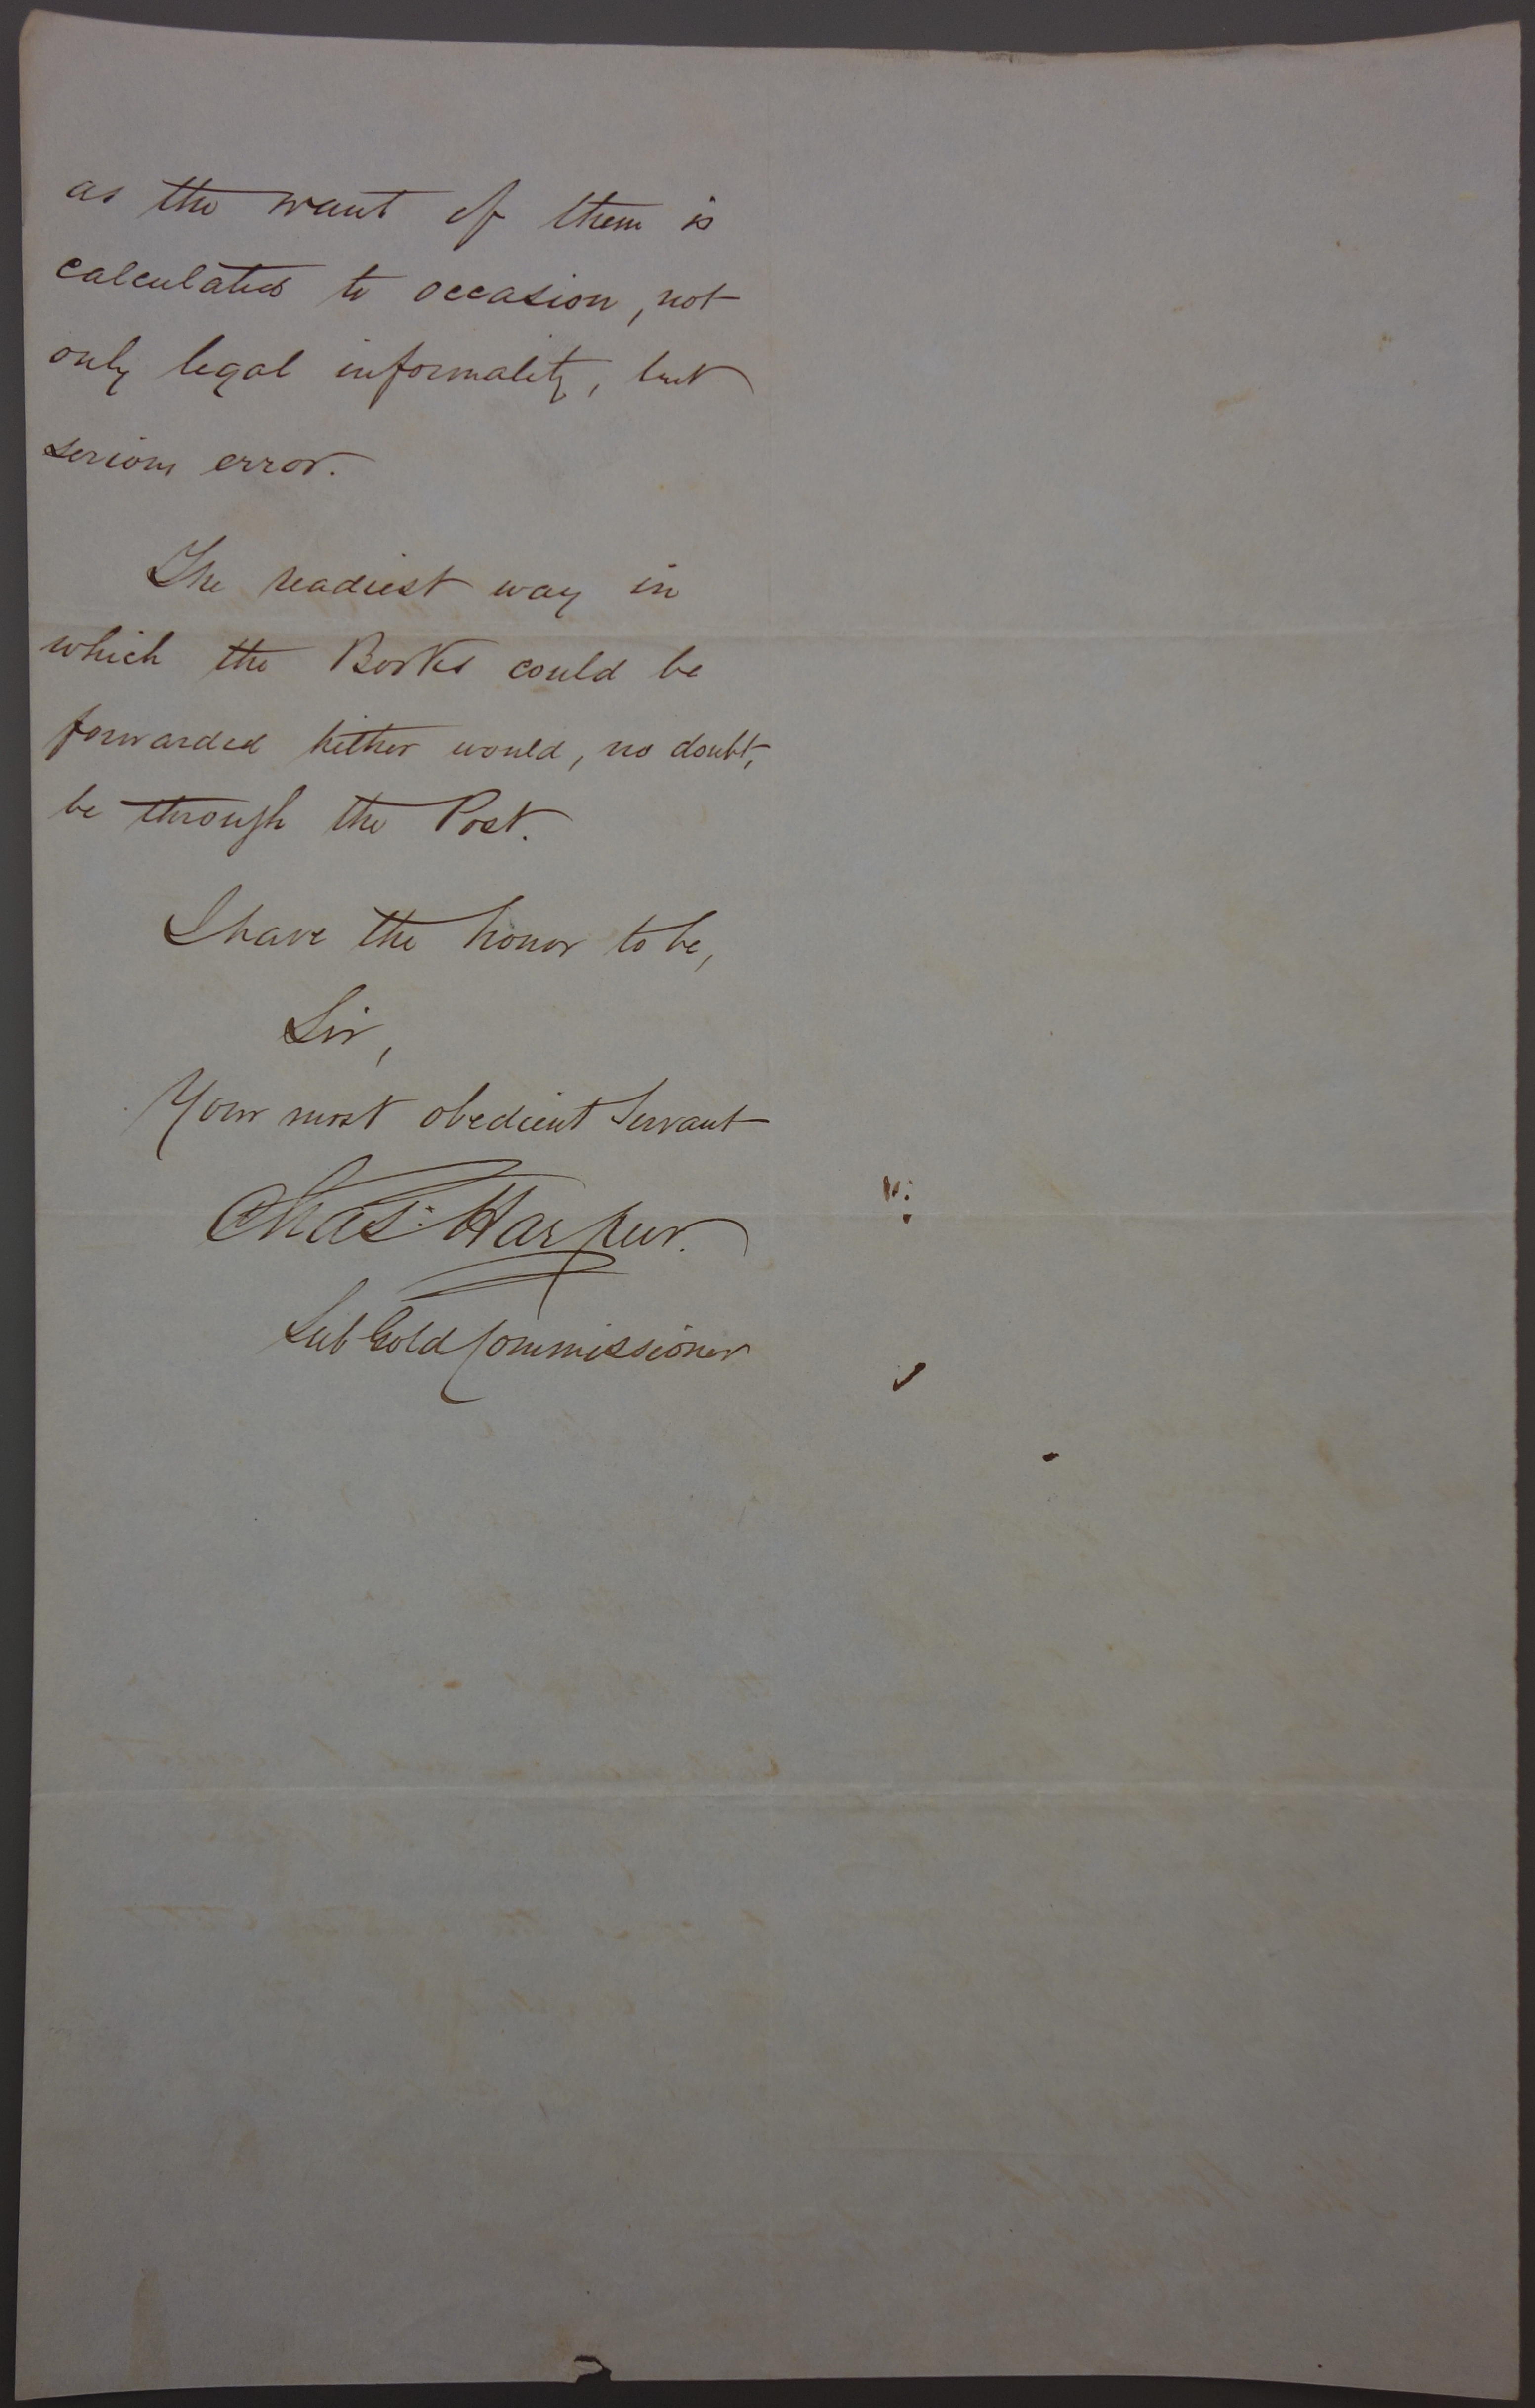 as the want of them is
calculated to occasion, not
only legal informality, but
serious error.
The readiest way in
which the Books could be
forwarded hither would, no doubt,
be through the Post.
I have the honor to be,
Sir,
Your most obedient Servant
Chas: Harpur.
Sub Gold Commissioner